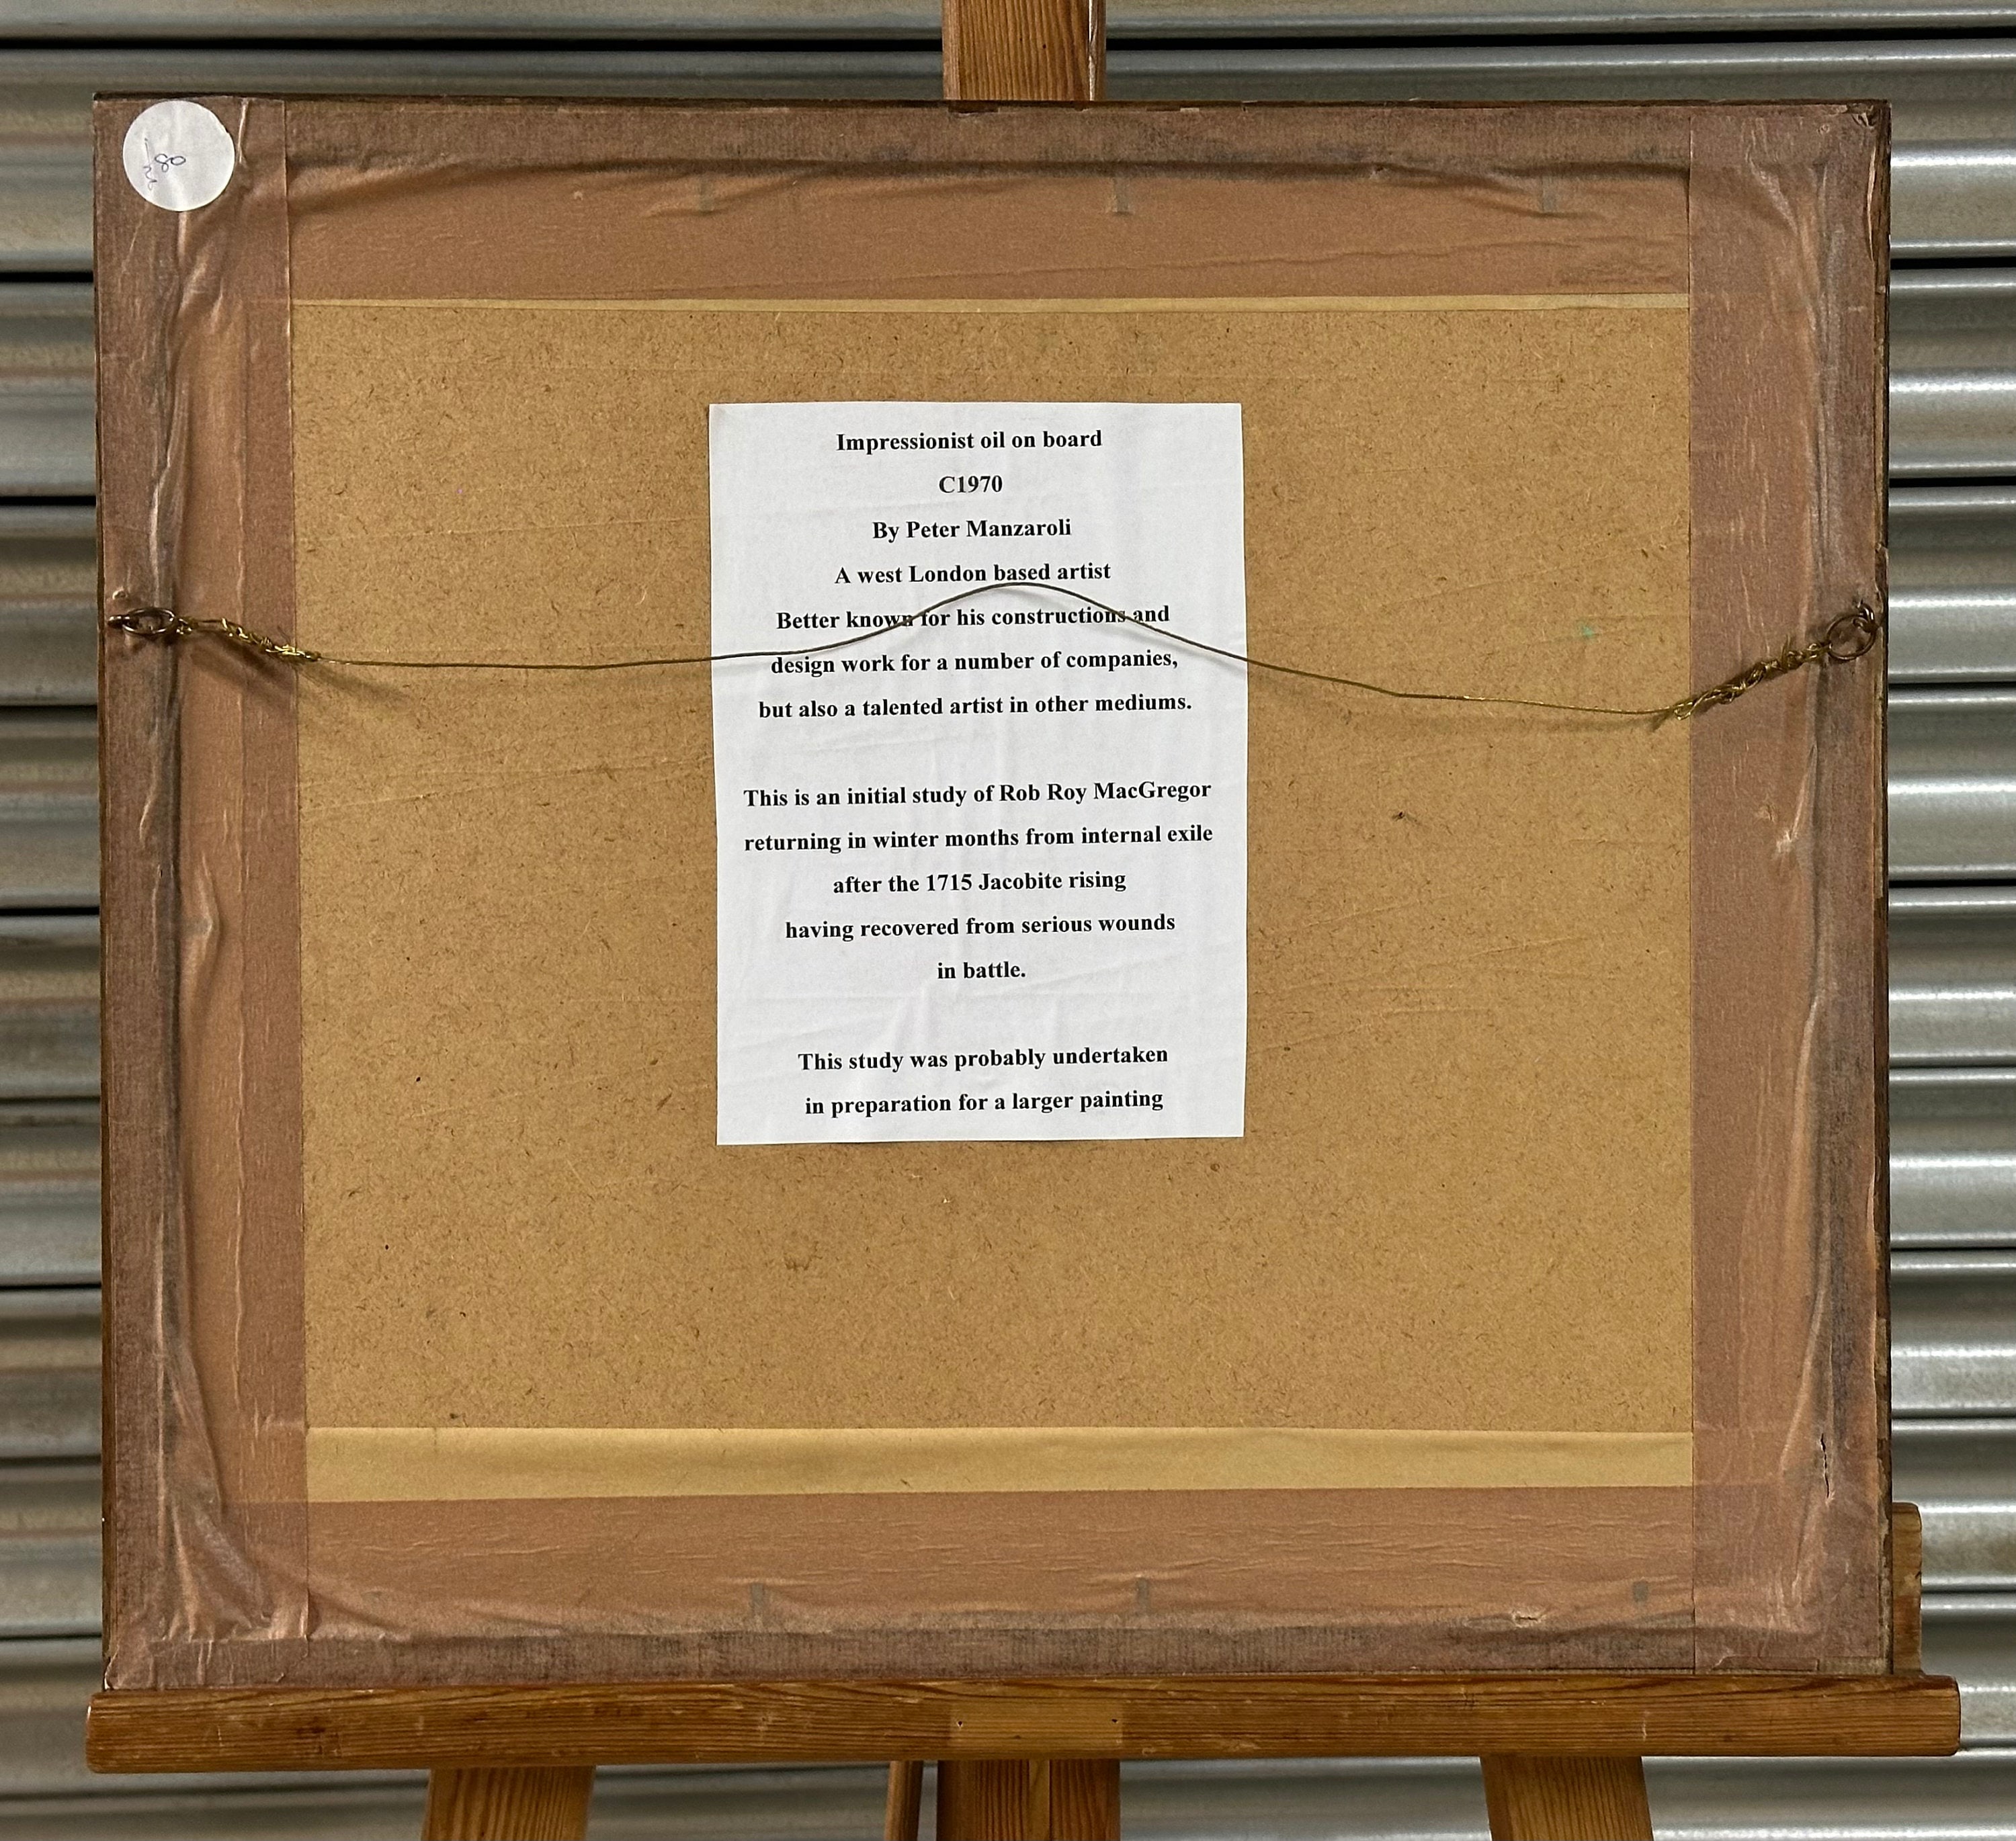 Impressionist oil on board
C1970
By Peter Manzaroli
A west London based artist
Better known for his constructions and
design work for a number of companies,
but also a talented artist in other mediums.
This is an initial study of Rob Roy MacGregor
returning in winter months from internal exile
after the 1715 Jacobite rising
having recovered from serious wounds
in battle.
This study was probably undertaken
in preparation for a larger painting